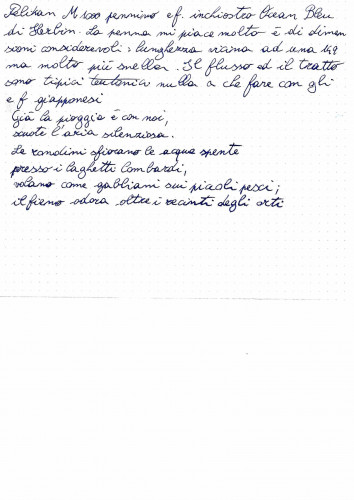 Pelikan M 1000 pennino ef. inchiostro Ocean Bleu
di Herbin. La penna mi piace molto è di dimen
sioni considerevoli: lunghezza vicina ad una 149
ma molto più snella. Il flusso ed il tratto
sono tipici teutonici nulla a che fare con gli
ef giapponesi
Già la pioggia è con noi,
scuote l'aria silenziosa.
Le rondini sfiorano le acque spente
presso i laghetti lombardi,
volano come gabbiani sui piccoli pesci;
il fieno odora oltre i recinti degli orti